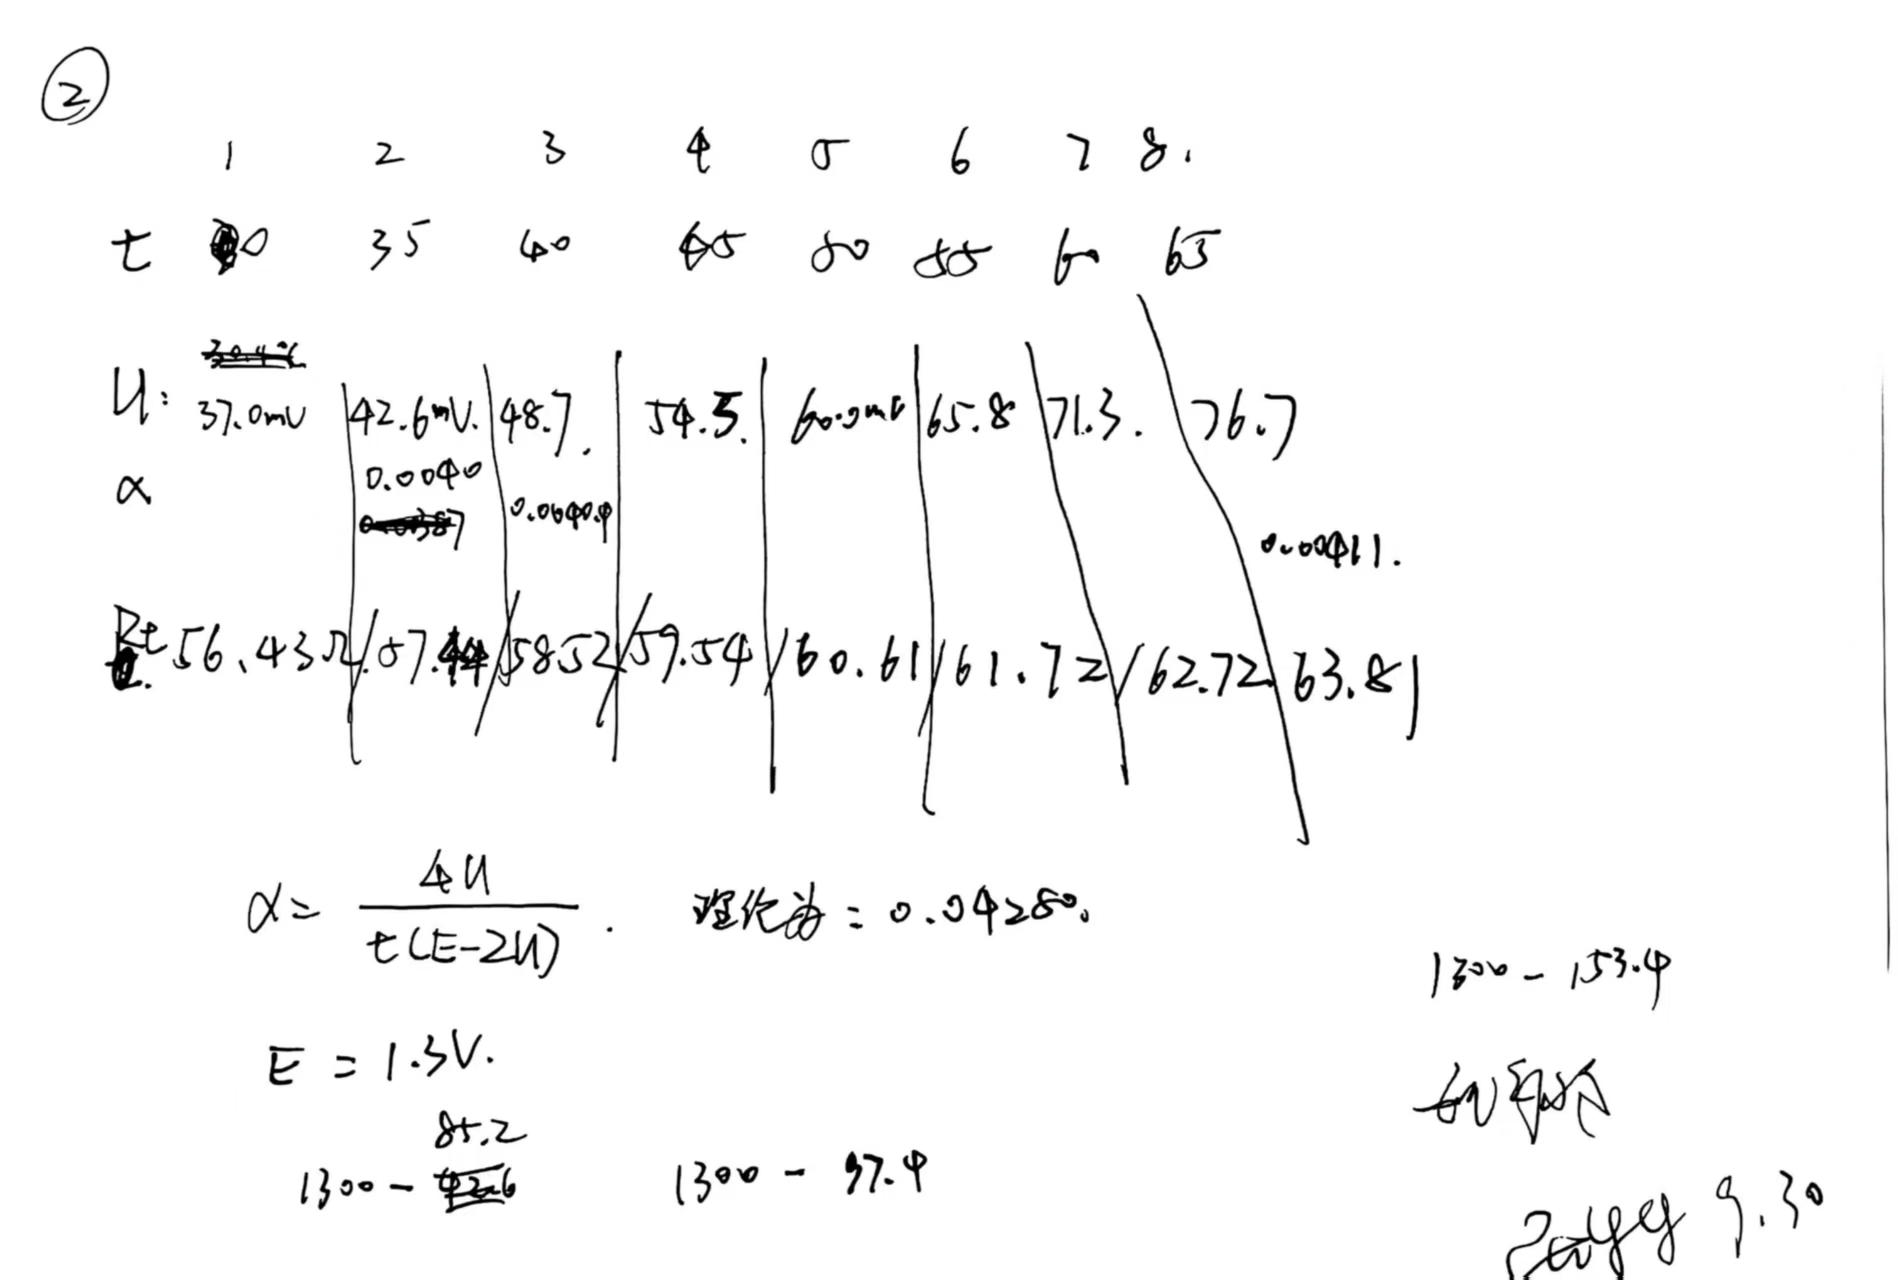 ②
1 2 3 4 5 6 7 8.
t 30 35 40 45 50 55 60 65
U: 37.0mV 42.6mV. 48.7. 54.5. 60.0mV 65.8 71.3. 76.7
α 0.0040 0.00404 0.00411.
Rt 56.43Ω 57.44 58.52 59.54 60.61 61.72 62.72 63.81
α = 4U / t(E-2U). 理论为 = 0.04280.
1300 - 153.4
E = 1.3V.
85.2
1300 - 1300 - 97.4
9.30